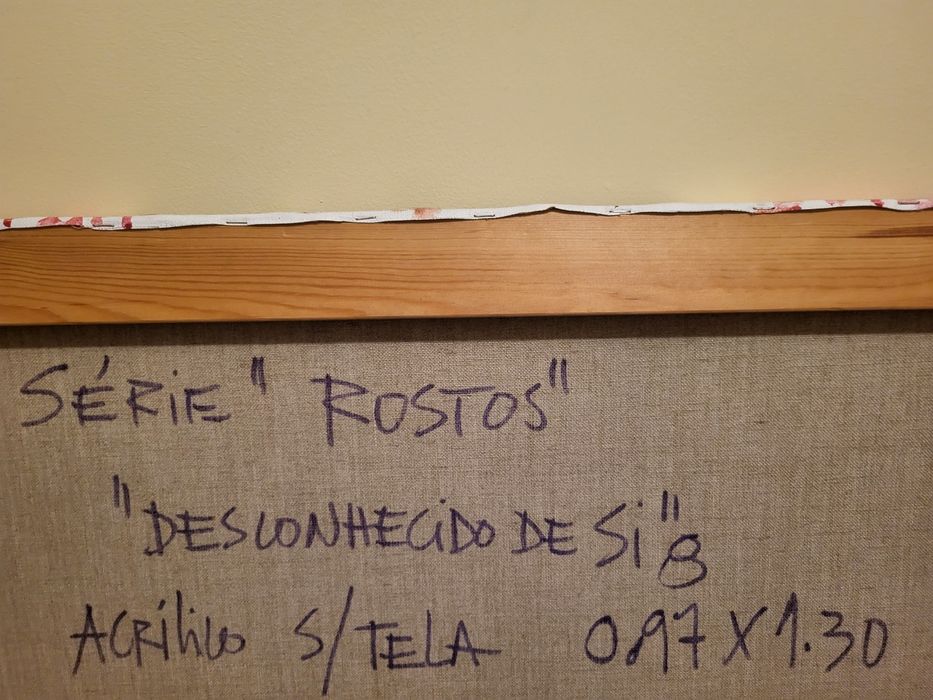 SÉRIE "ROSTOS"
"DESCONHECIDO DE SI" 8
ACRÍLICO S/TELA 0.97 X 1.30